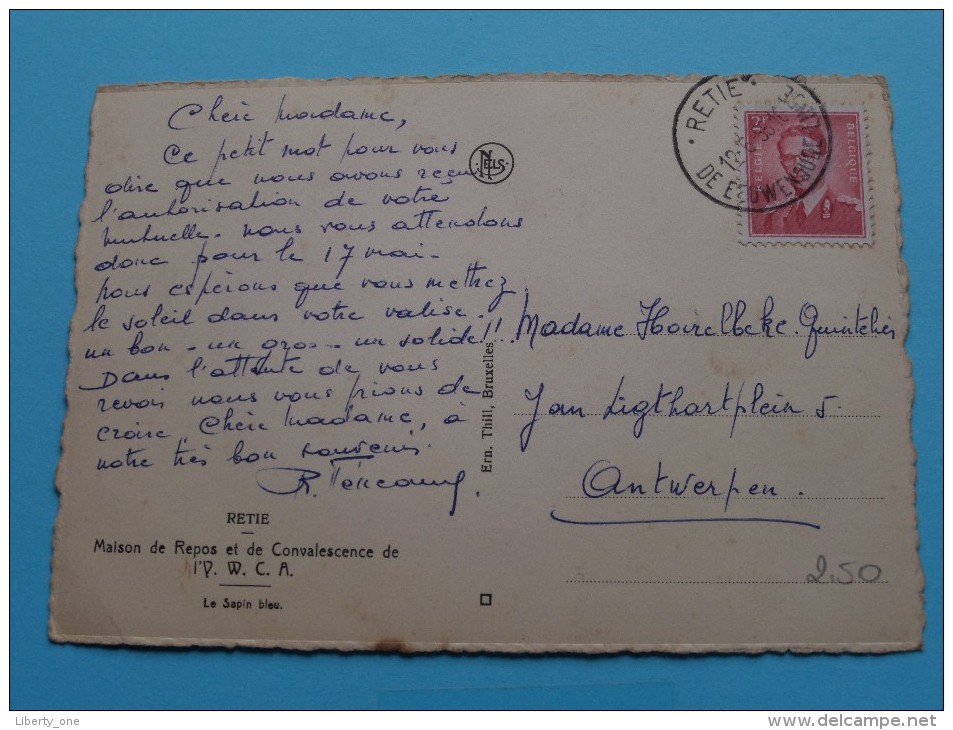 Chère Madame,
Ce petit mot pour vous
dire que nous avons reçu
l'autorisation de votre
mutuelle. nous vous attendons
donc pour le 17 mai.
nous espérons que vous mettrez
le soleil dans votre valise.
un bon - un gros - un solide!!!
Dans l'attente de vous
revoir nous vous prions de
croire, Chère Madame, à
notre très bon souvenir.
R.
RETIE
Maison de Repos et de Convalescence de
l'Y. W. C. A.
Le Sapin bleu.
NELS
Ern. Thill, Bruxelles
RETIE
DE EEUWENOUDE
BELGIE BELGIQUE
2F
Madame Havelbeke-Quintelier
Jan Ligthartplein 5.
Antwerpen.
2.50
Liberty_one
www.delcampe.net